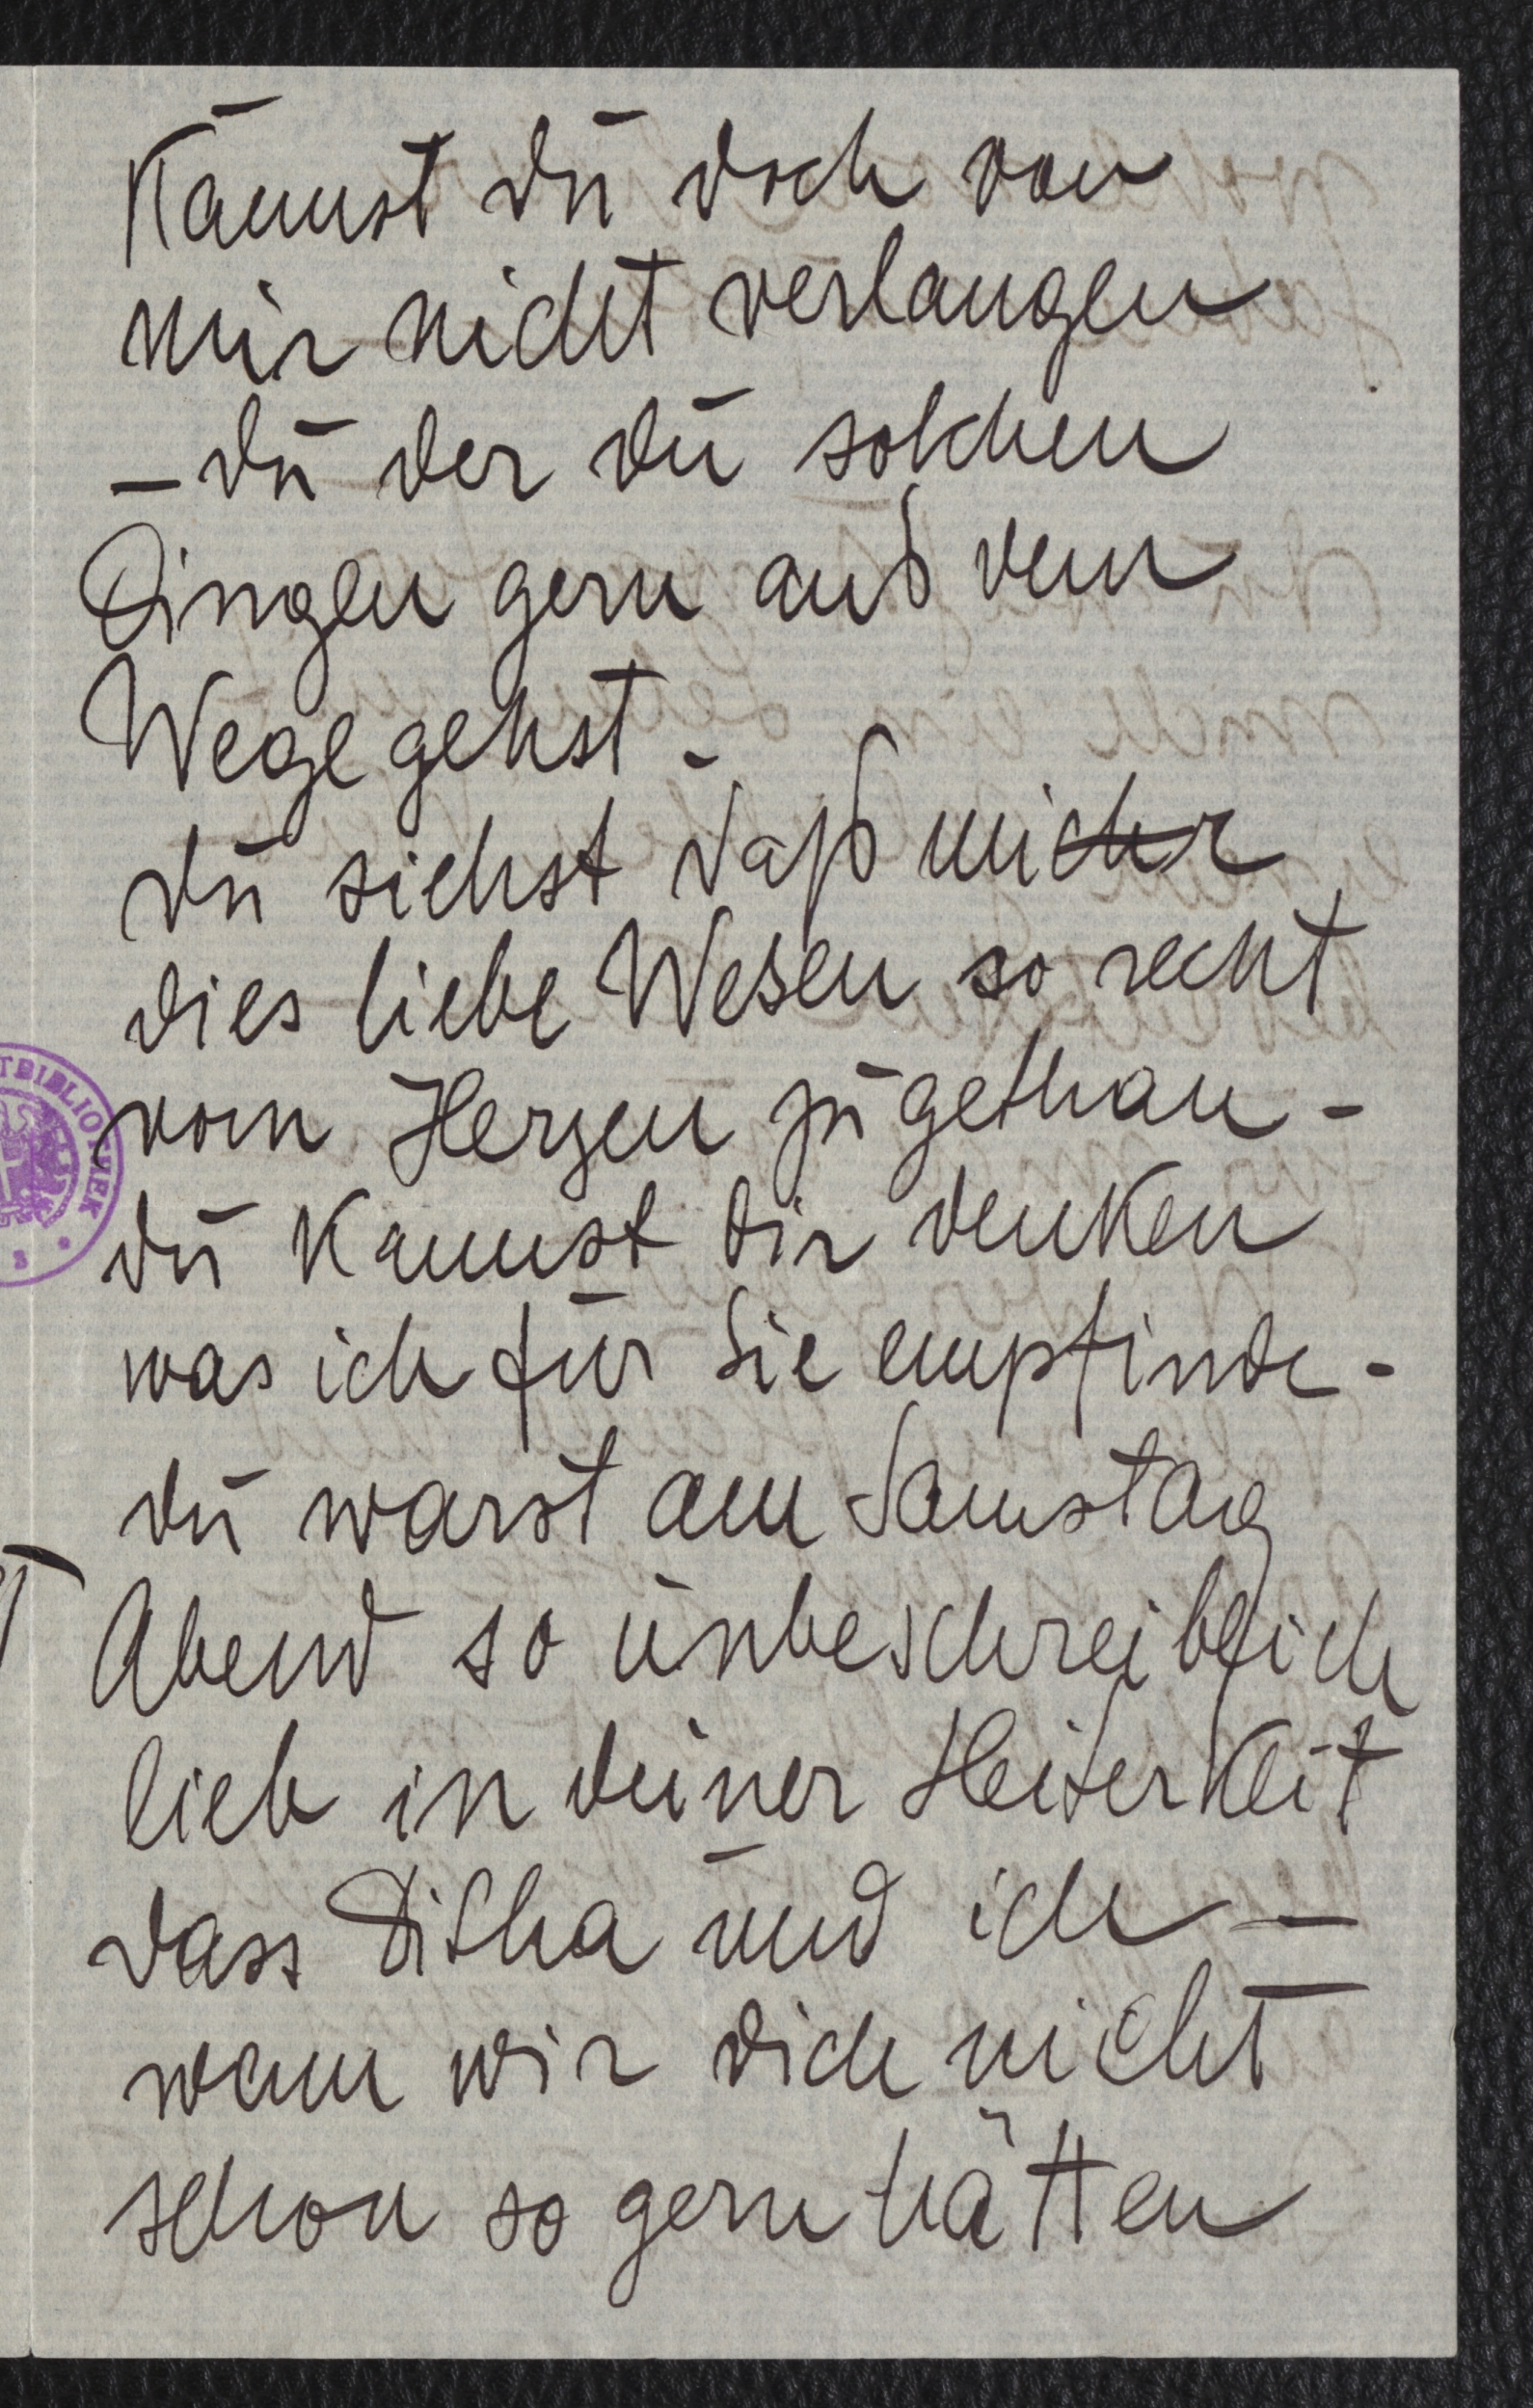 Kannst du doch von
mir nicht verlangen
– du der du solchen
Dingen gern aus dem
Wege gehst.
du siehst daß michr
dies liebe Wesen so recht
vom Herzen zugethan –
du kannst dir denken
was ich für Sie empfinde –
du warst am Samstag
Abend so unbeschreiblich
lieb in deiner Heiterkeit
dass Ditha und ich –
wenn wir dich nicht
schon so gern hätten
TBIBLIOTHEK